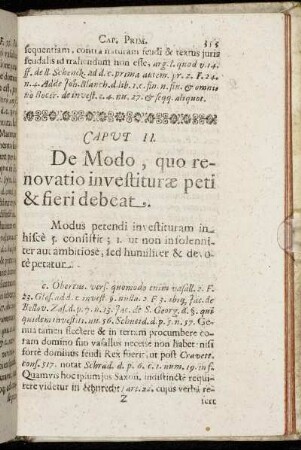 CAP. PRIM. 315
sequentiam, contra naturam feudi & textus juris
feudalis id trahendum non esse, arg. l. quod v. 14.
ff. de ll. Schenck. ad d. c. prima autem. pr. 2. F. 24.
n. 4. Adde Joh. Blanch. d. lib. 1. c. fin. n. fin. & omni-
nò Bocer. de invest. c. 4. nu. 27. & seqq. aliquot.
CAPUT II.
De Modo, quo re-
novatio investituræ peti
& fieri debeat.
Modus petendi investituram in
hisce 5. consistit; 1. ut non insolenni-
ter aut ambitiosè, sed humiliter & devo-
tè petatur.
c. Obertus. vers. quomodo enim vasall. 2. F.
23. Glos. ad t. invest. §. nulla. 2 F. 3. ibiq, Jac. de
Bellov. Zas. d. p. 7. n. 13. Jac. de S. Georg. d. §. qui
quidem investiti. nu. 36. Schneid. d. p. 3. n. 37. Ge-
nua tamen flectere & in terram procumbere co-
ram domino suo vasallus necesse non habet: nisi
fortè dominus feudi Rex fuerit, ut post Cravett.
cons. 317. notat Schrad. d. p. 6. c. 1. num. 19. in f.
Quamvis hoc ipsum jus Saxon. indistinctè requi-
rere videtur in Lehnrecht / art. 22. cujus verba re-
Z ierr